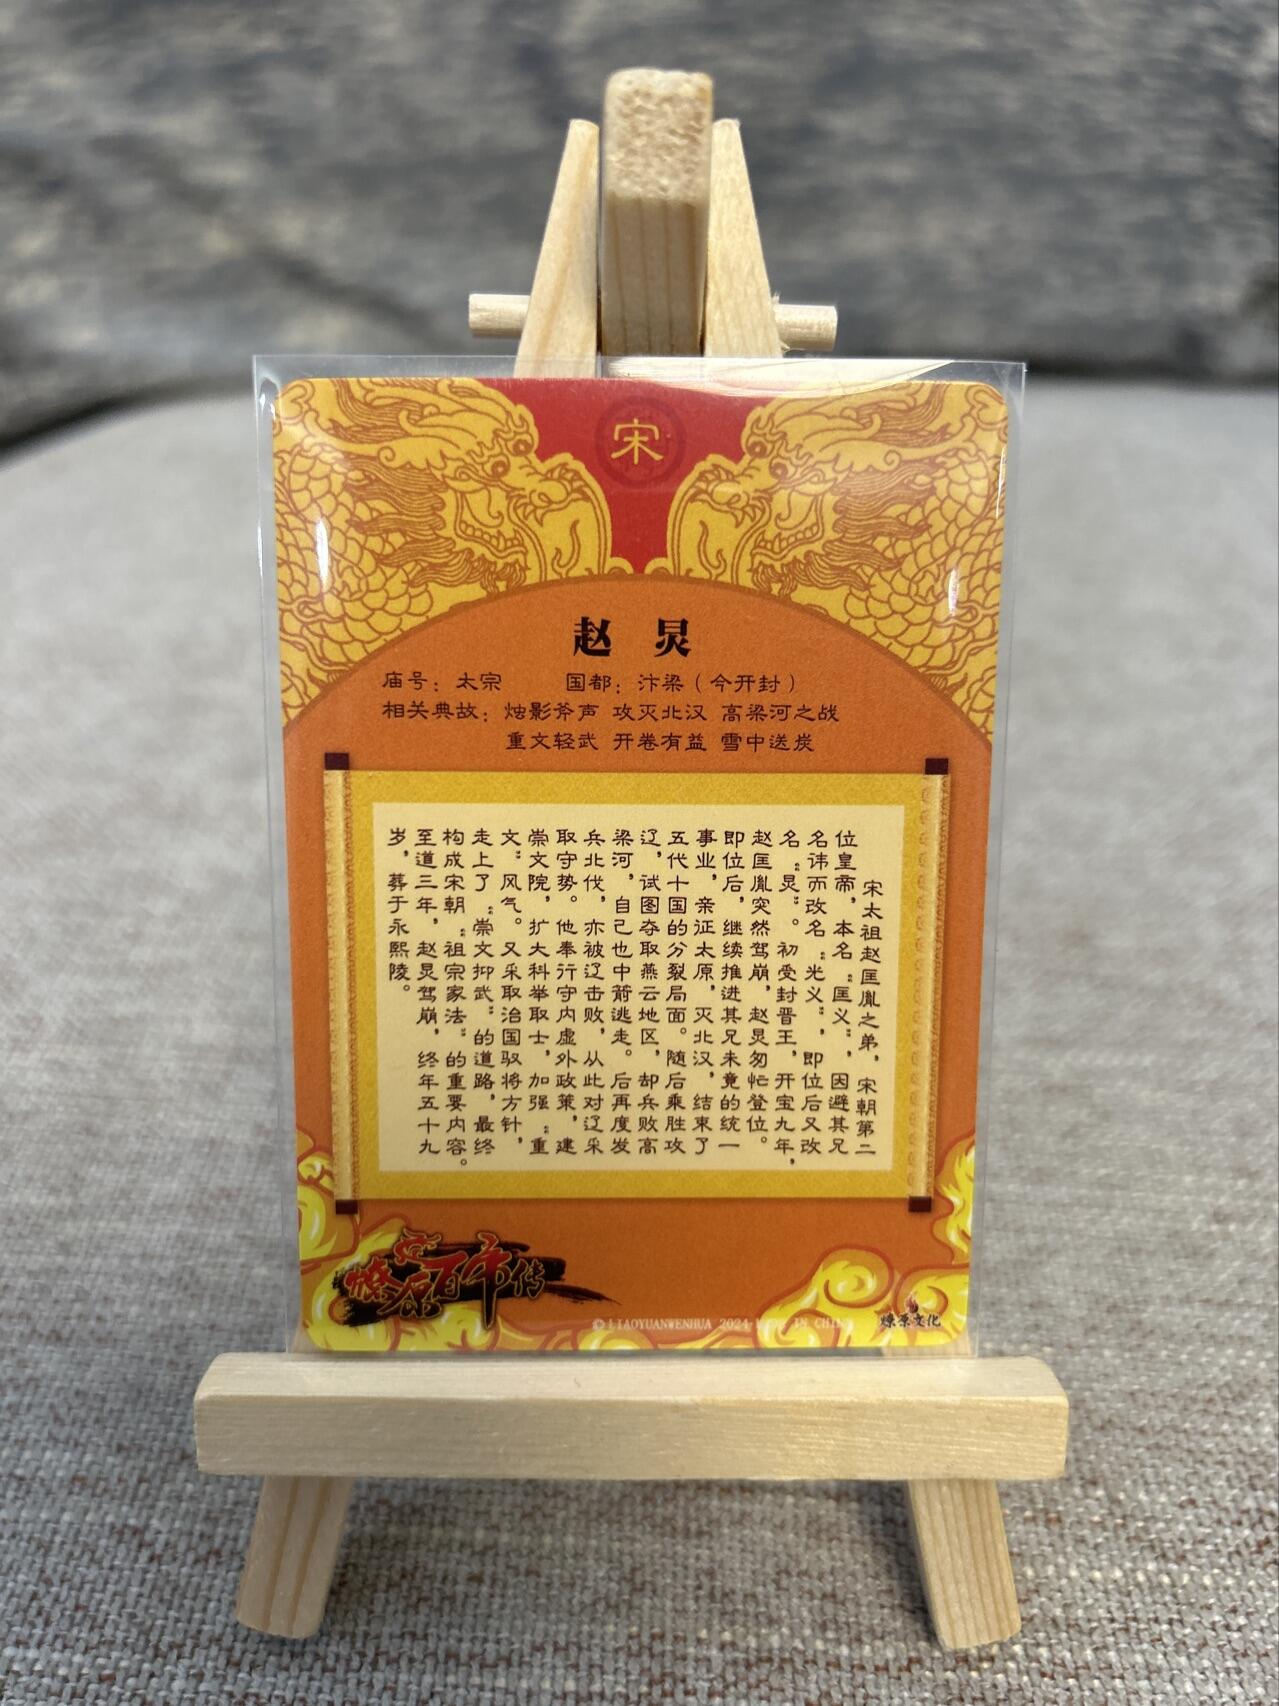 宋
赵炅
庙号：太宗 国都：汴梁（今开封）
相关典故：烛影斧声 攻灭北汉 高梁河之战
重文轻武 开卷有益 雪中送炭
宋太祖赵匡胤之弟，宋朝第二
位皇帝，本名“匡义”，因避其兄
名讳而改名“光义”，即位后又改
名“炅”。初受封晋王，开宝九年，
赵匡胤突然驾崩，赵炅匆忙登位。
即位后，继续推进其兄未竟的统一
事业，亲征太原，灭北汉，结束了
五代十国的分裂局面。随后乘胜攻
辽，试图夺取燕云地区，却兵败高
梁河，自己也中箭逃走。后再度发
兵北伐，亦被辽击败，从此对辽采
取守势。他奉行守内虚外政策，建
崇文院，扩大科举取士，加强“重
文”风气。又采取治国驭将方针，
走上了“崇文抑武”的道路，最终
构成宋朝“祖宗家法”的重要内容。
至道三年，赵炅驾崩，终年五十九
岁，葬于永熙陵。
燎原百帝传
©LIAOYUANWENHUA 2024 IN CHINA
燎原文化